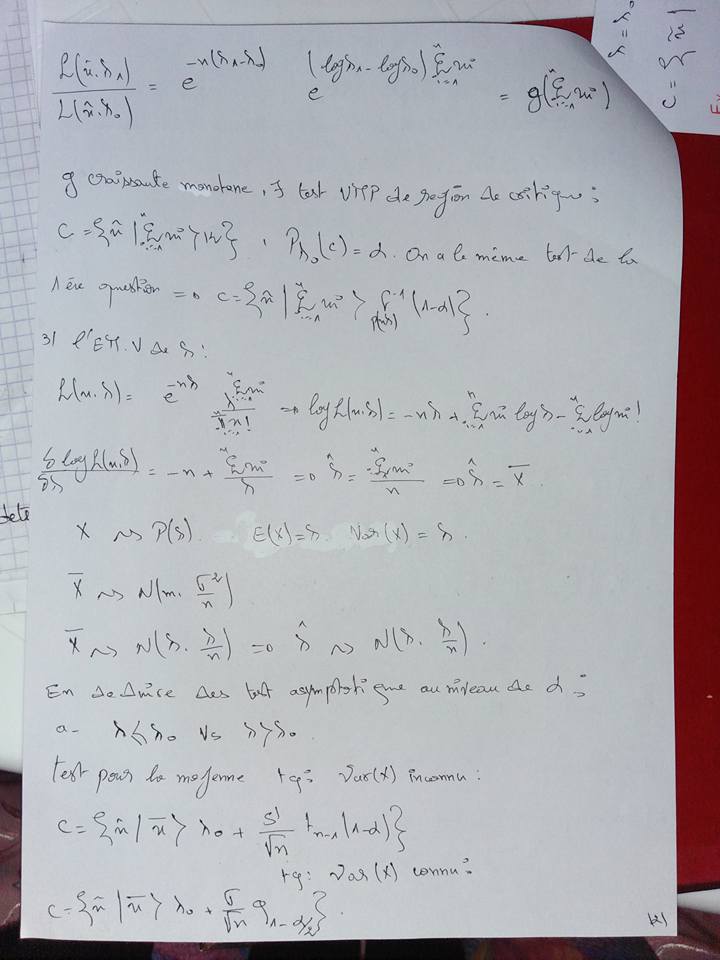 L(x̃.λ₁) / L(x̃.λ₀) = e^{-n(λ₁-λ₀)} e^{(logλ₁-logλ₀) Σⁿᵢ₌₁ xi} = g(Σⁿᵢ₌₁ xi)
g craissante monotone, ∃ test UMP de region de critique :
C = {x̃ | Σⁿᵢ₌₁ xi > K}, P_{λ₀}(C) = α. On a le même test de la
1ère question => C = {x̃ | Σⁿᵢ₌₁ xi > F⁻¹_{P(nλ)} (1-α)}.
3) l'EMV de λ :
L(x.λ) = e^{-nλ} λ^{Σⁿᵢ₌₁ xi} / Πⁿᵢ₌₁ xi! => log L(x.λ) = -nλ + Σⁿᵢ₌₁ xi logλ - Σⁿᵢ₌₁ log xi!
δ log L(x,λ) / δλ = -n + Σⁿᵢ₌₁ xi / λ => λ̂ = Σⁿᵢ₌₁ xi / n => λ̂ = X̄.
X ~> P(λ). E(X) = λ. Var(X) = λ.
X̄ ~> N(m. σ²/n)
X̄ ~> N(λ. λ/n) => λ̂ ~> N(λ. λ/n).
En deduire des test asymptotique au niveau de α :
a- λ ≤ λ₀ Vs λ > λ₀.
test pour la moyenne tq: Var(X) inconnu :
C = {x̃ | x̄ > λ₀ + S'/√n t_{n-1}(1-α)}
tq: Var(X) connu :
C = {x̃ | x̄ > λ₀ + σ/√n q_{1-α/2}}.
(2)
dete
λ = λ₀
C = {x̃ |